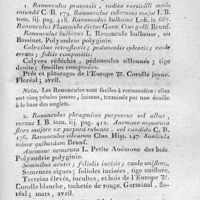 1 Ranunculus pratensis, radice verticilli modo
rotundâ C. B. 179. Ranunculus tuberosus major I. B.
tom. iij. pag. 418. Ranunculus bulbosus Lob. ic. 667.
Ranunculus Plantaginis dictus Gesn. Coq galli Brunf.
Ranunculus bulbosus L. Renoncule bulbeuse, ou
Bassinet. Polyandrie polyginie.
Calycibus retroflexis; pedunculis sulcatis; caule
erecto; foliis compositis.
Calyces réfléchis; péduncules sillonnés; tige
droite; feuilles composées.
Prés et pâturages de l'Europe ♃. Corolle jaune.
Floréal; avril.
Nota. Les Renoncules sont faciles à reconnaître: elles
ont cinq pétales luisans, comme s'ils étaient
2. Ranunculus phragmites purpureus vel albus
vernus I. B. tom. iij. pag. 412. Anemone nemorosa
flore majore ex purpurâ rubente, vel candido C. B.
176. Ranunculus silvarum Clus. Hist. 247. Sanicula
minor quibusdam Brunf.
Anemone nemorosa L. Petite Anémone des bois.
Polyandrie polyginie.
Seminibus acutis; foliolis incisis; caule unifloro.
Semences aigues; folioles incisées, tige uniflore.
Terreins élevés, incultes, et bois de l'Europe ♃.
Corolle blanche, tachetée de rouge. Germinal, floréal;
mars, avril.